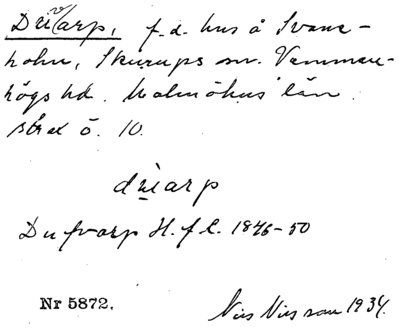 Dri(v)arp, f.d. hus å Svane-
holm, Skurups sn. Vemmen-
högs hd. Malmöhus län.
ö. 10.
driarp
Dufvarp H.f.l. 1846-50
Nr 5872.
Nils Nilsson 1934.